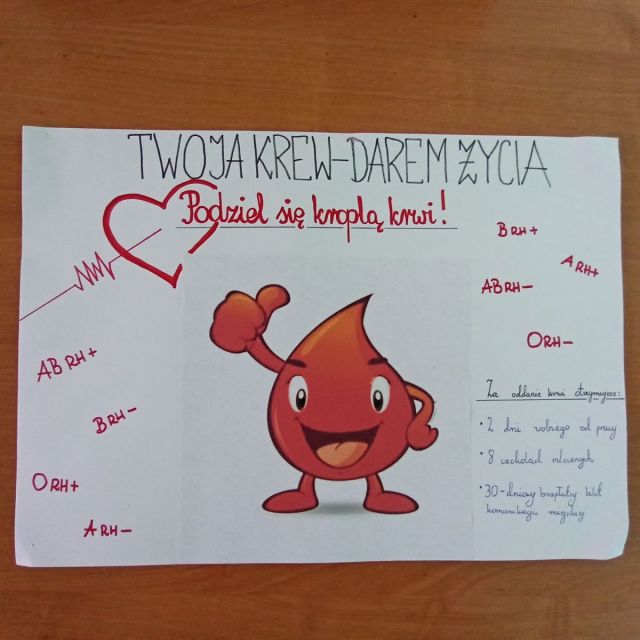 TWOJA KREW-DAREM ŻYCIA
Podziel się kroplą krwi!
B RH+
A RH+
AB RH-
O RH-
AB RH+
B RH-
O RH+
A RH-
Za oddanie krwi otrzymujesz:
• 2 dni wolnego od pracy
• 8 czekolad mlecznych
• 30-dniowy bezpłatny bilet
komunikacji miejskiej